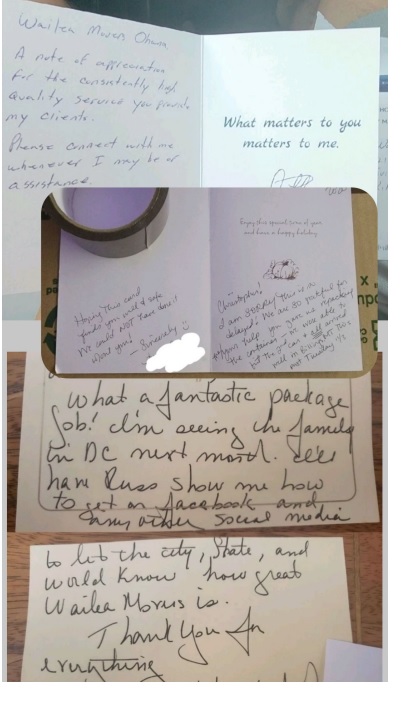 Wailea Movers Ohana,
A note of appreciation
for the consistently high
quality service you provide
my clients.
Please connect with me
whenever I may be of
assistance.
What matters to you
matters to me.
Hoping this card
finds you well & safe
We could NOT have done it
without you!
- Sincerely
Enjoy this special time of year
and have a happy holiday.
Christopher!
I am SORRY this is a
delayed! We are so grateful for
help you gave me
the container. We were able to
fit it all and
well in
past Tuesday
What a fantastic package
job! I'm seeing the family
in DC next month. I'll
have Russ show me how
to get on facebook and
any other social media
to let the city, State, and
world know how great
Wailea Movers is.
Thank You for
everything